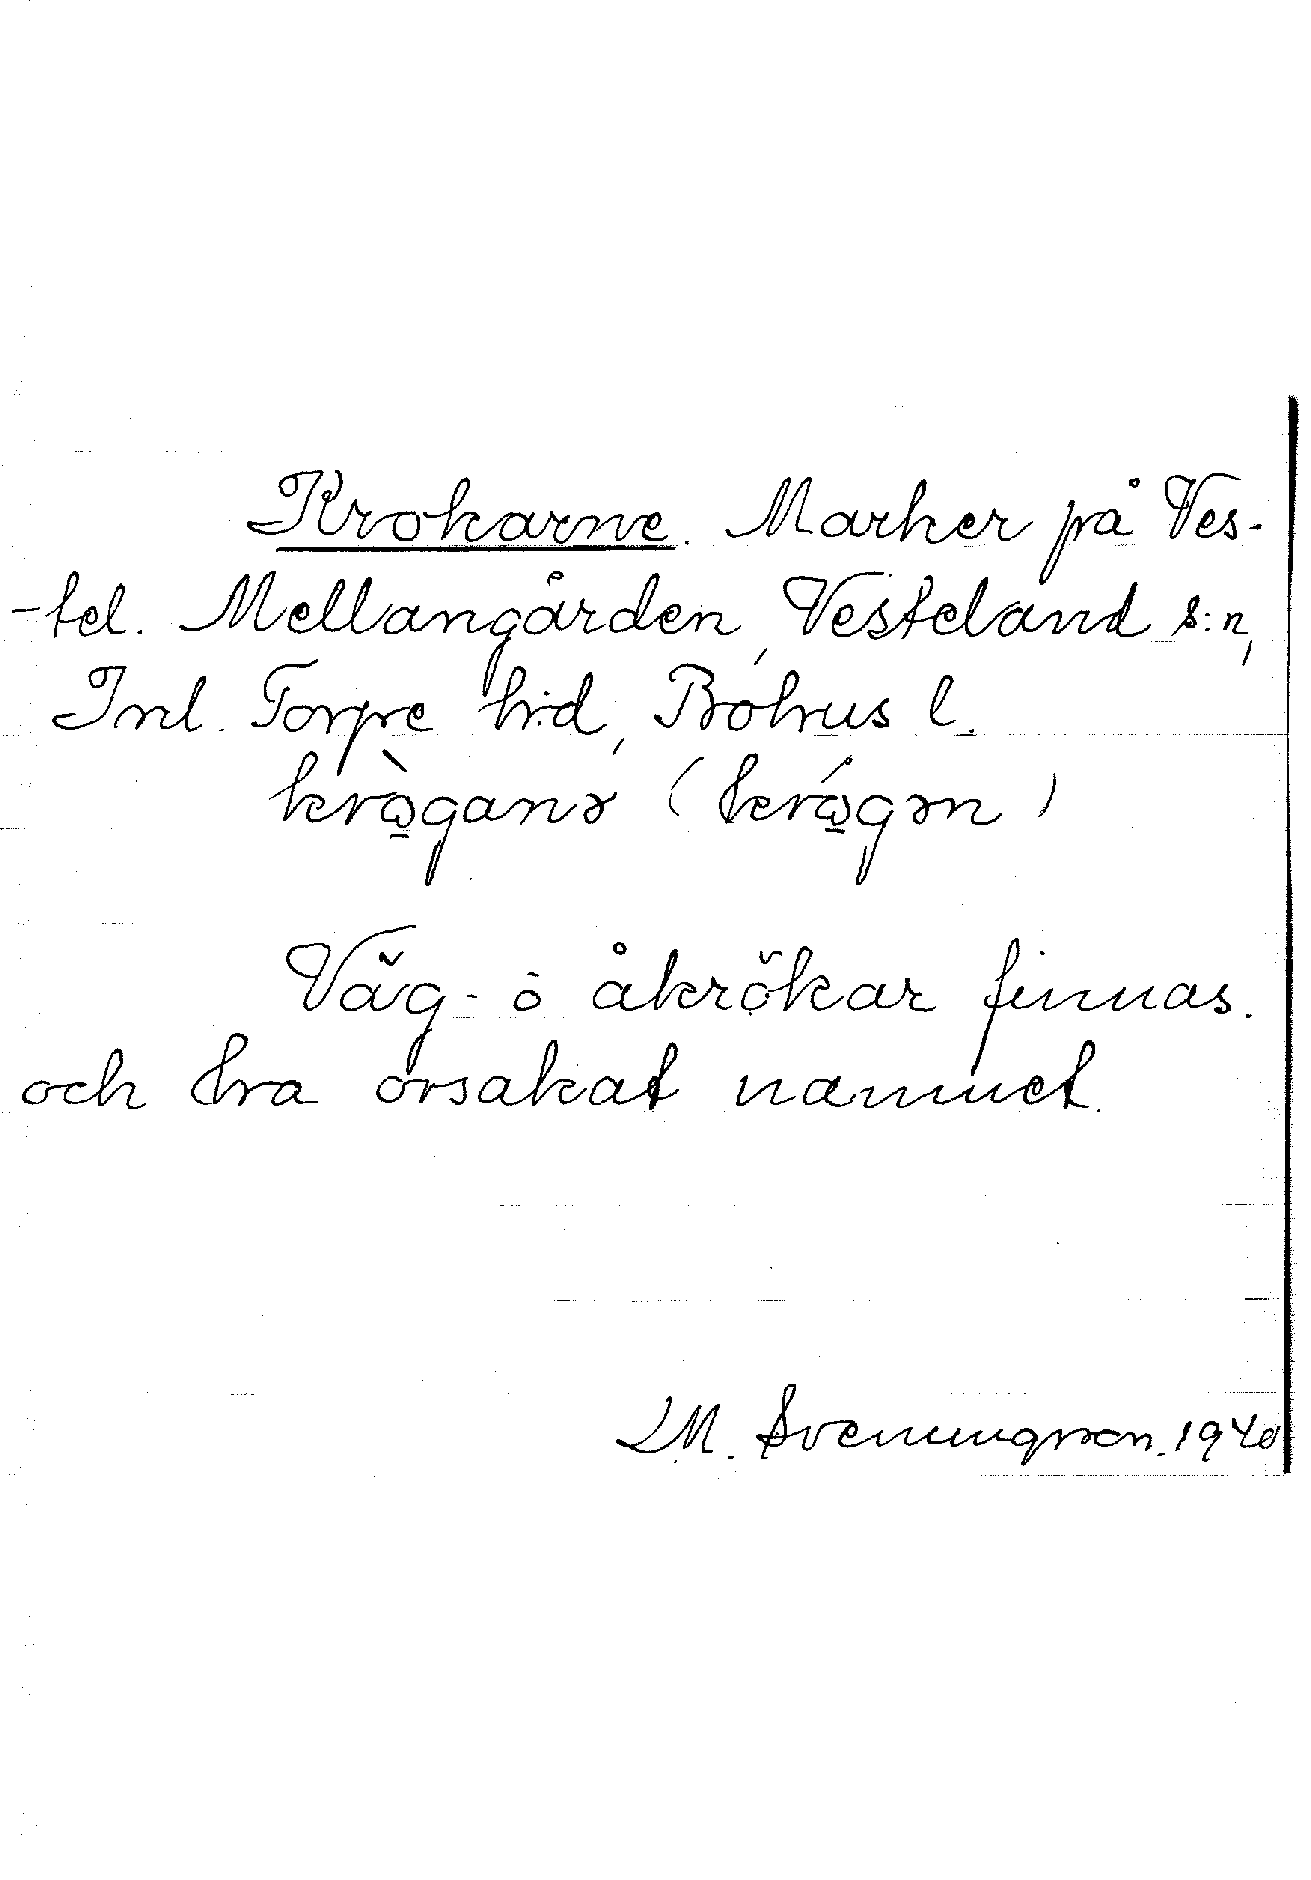 Krokarne. Marker på Ves-
-tel. Mellangården, Vesteland s:n,
Inl. Torpe hrd, Bohus l.
kròganə (krógən)
Väg- o åkrökar finnas.
och hra orsakat namnet.
LM. Svenningson. 1940